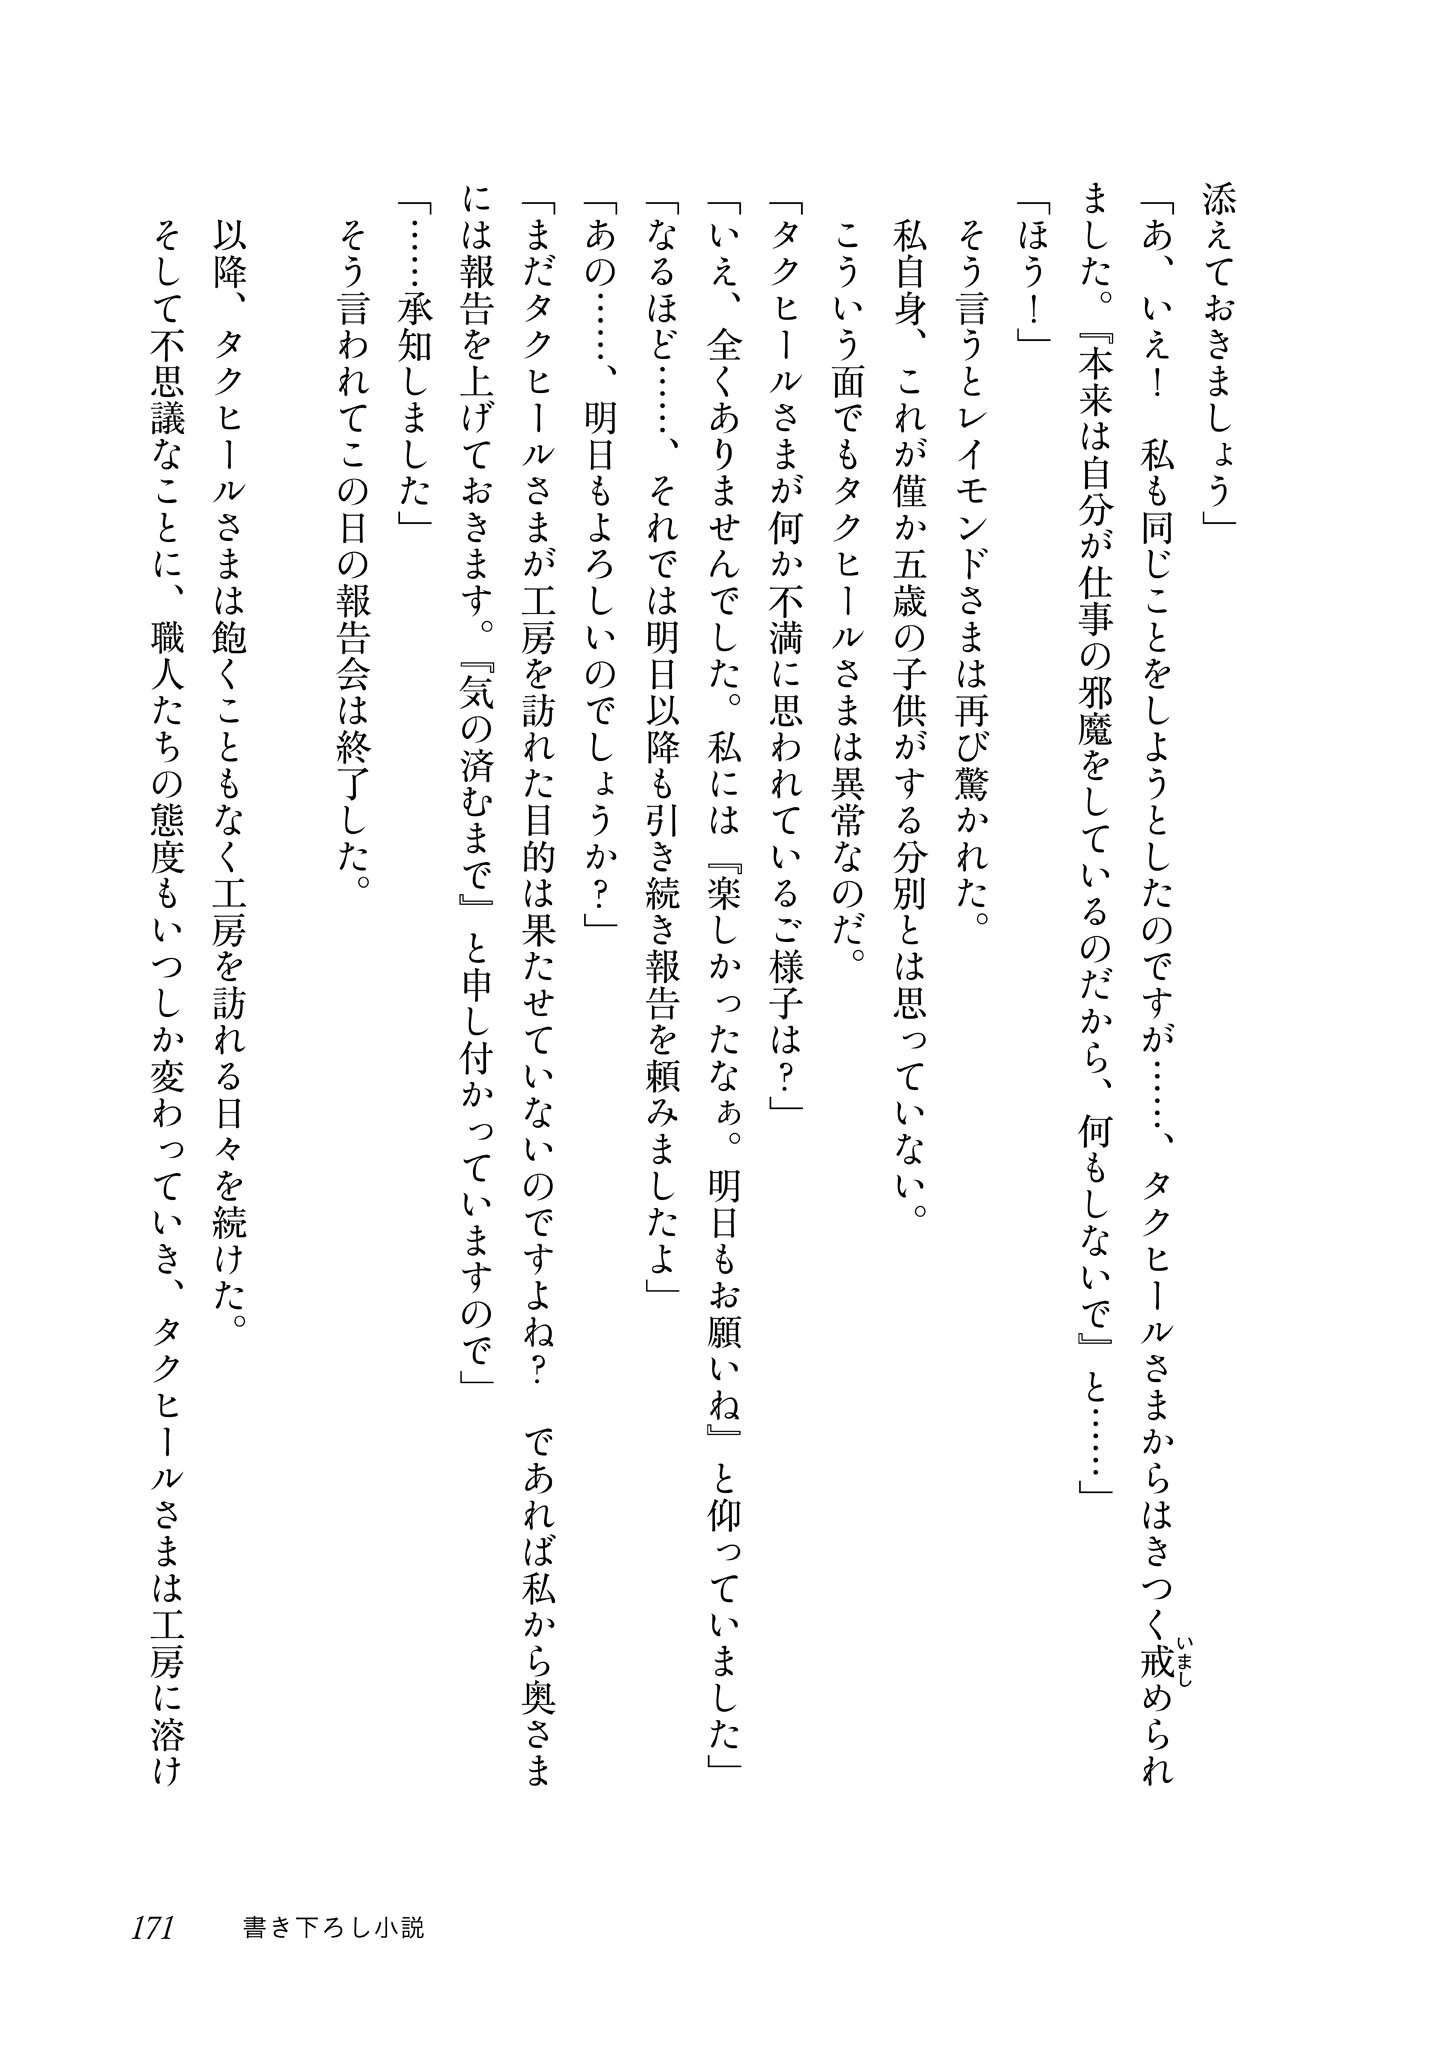 添えておきましょう」
「あ、いえ！　私も同じことをしようとしたのですが……、タクヒールさまからはきつく戒められ
いまし
ました。『本来は自分が仕事の邪魔をしているのだから、何もしないで』と……」
「ほう！」
　そう言うとレイモンドさまは再び驚かれた。
　私自身、これが僅か五歳の子供がする分別とは思っていない。
　こういう面でもタクヒールさまは異常なのだ。
「タクヒールさまが何か不満に思われているご様子は？」
「いえ、全くありませんでした。私には『楽しかったなぁ。明日もお願いね』と仰っていました」
「なるほど……、それでは明日以降も引き続き報告を頼みましたよ」
「あの……、明日もよろしいのでしょうか？」
「まだタクヒールさまが工房を訪れた目的は果たせていないのですよね？　であれば私から奥さま
には報告を上げておきます。『気の済むまで』と申し付かっていますので」
「……承知しました」
　そう言われてこの日の報告会は終了した。
　以降、タクヒールさまは飽くこともなく工房を訪れる日々を続けた。
　そして不思議なことに、職人たちの態度もいつしか変わっていき、タクヒールさまは工房に溶け
171
書き下ろし小説